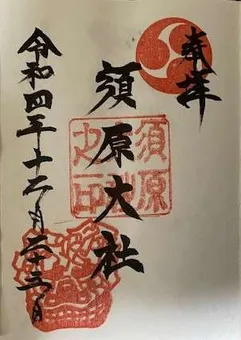 奉拝
須原大社
令和四年十二月二十三日
須原
之印